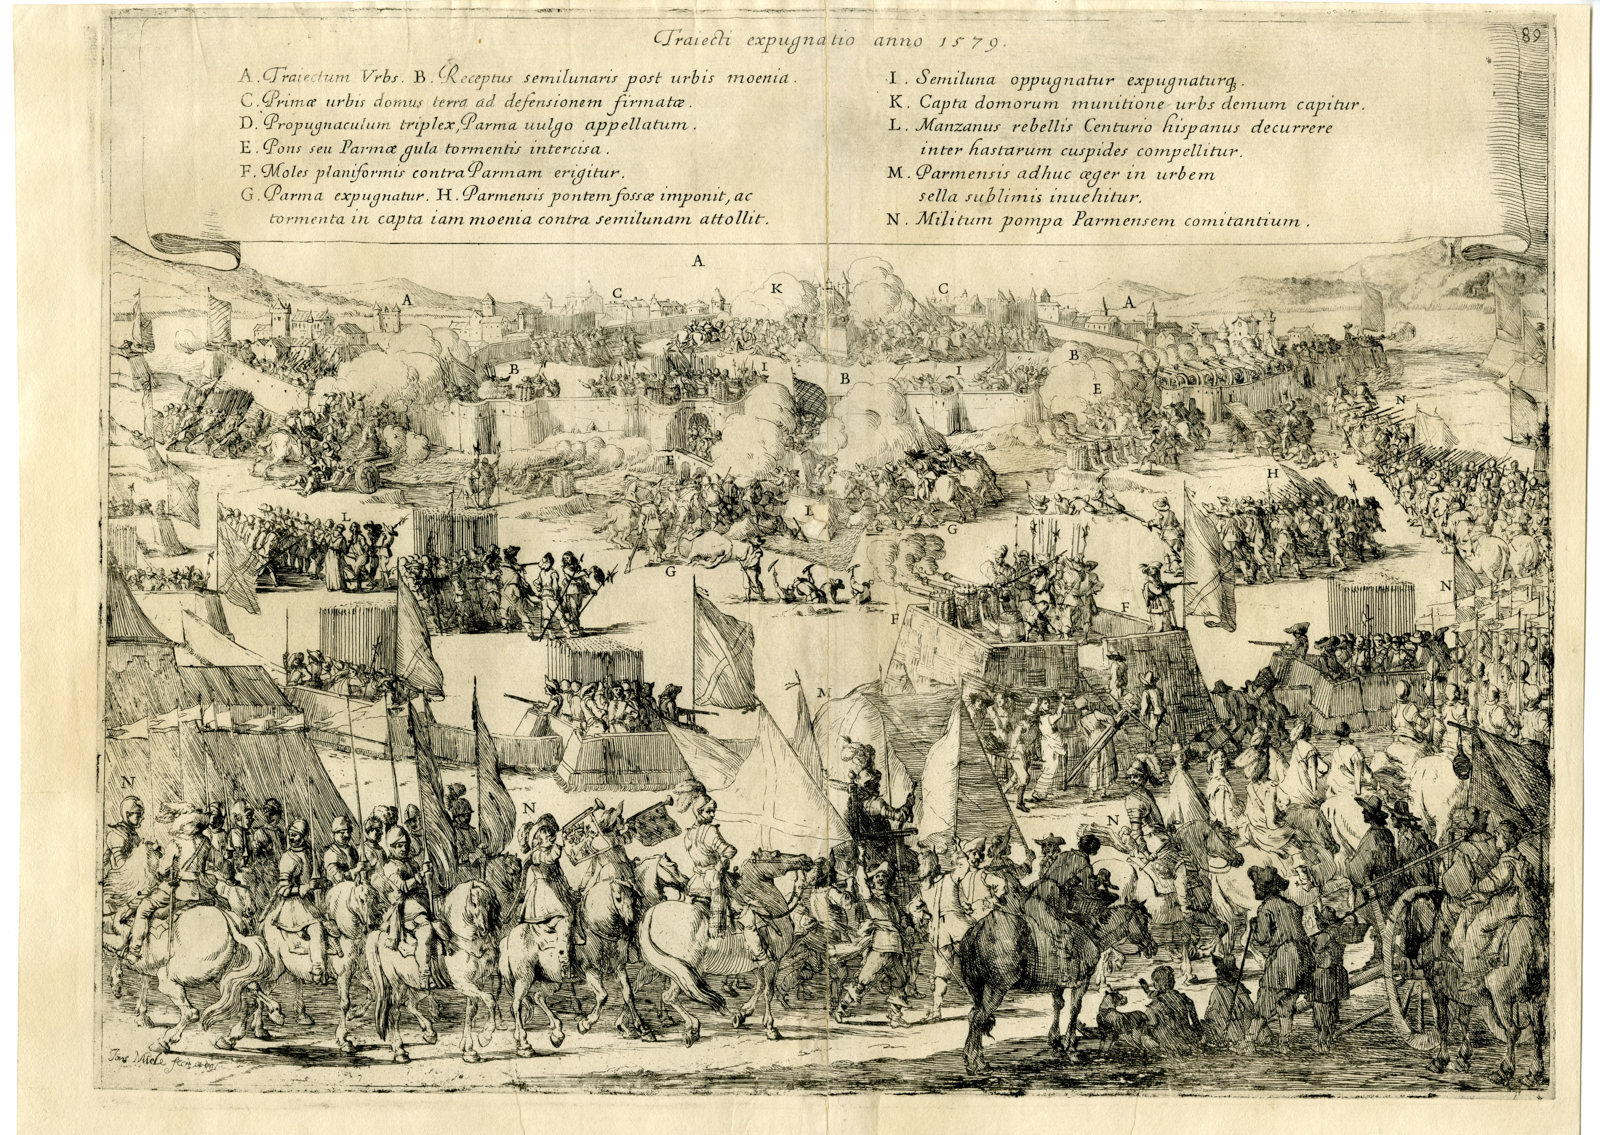 89
Traiecti expugnatio anno 1579.
A. Traiectum Vrbs. B. Receptus semilunaris post urbis moenia.
C. Primæ urbis domus terra ad defensionem firmatæ.
D. Propugnaculum triplex, Parma uulgo appellatum.
E. Pons seu Parmæ gula tormentis intercisa.
F. Moles planiformis contra Parmam erigitur.
G. Parma expugnatur. H. Parmensis pontem fossæ imponit, ac
tormenta in capta iam moenia contra semilunam attollit.
I. Semiluna oppugnatur expugnaturq.
K. Capta domorum munitione urbs demum capitur.
L. Manzanus rebellis Centurio hispanus decurrere
inter hastarum cuspides compellitur.
M. Parmensis adhuc æger in urbem
sella sublimis inuehitur.
N. Militum pompa Parmensem comitantium.
A
A C K C A
B I B I B
E N
E H
L I G
G N
F F
M
N N N
Miele